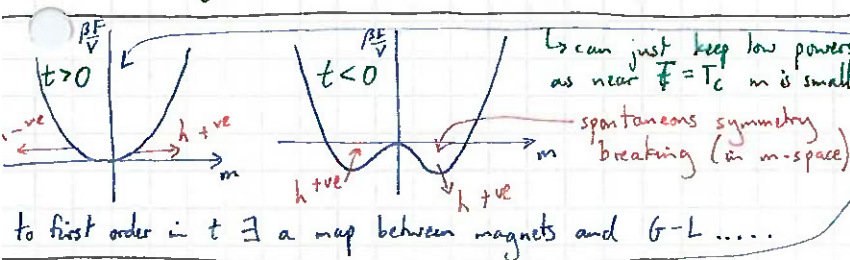 βF/V
t>0
-ve
h +ve
m
βF/V
t<0
h +ve
h +ve
m
↳ can just keep low powers
as near T = Tc m is small
spontaneous symmetry
breaking (in m-space)
to first order in t ∃ a map between magnets and G-L .....